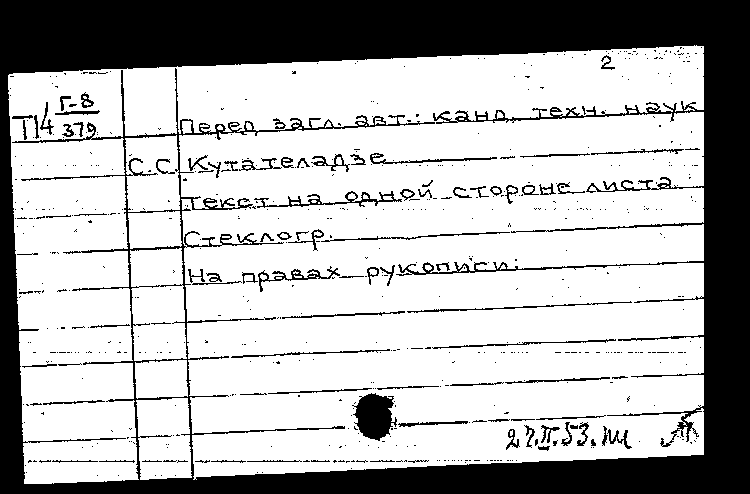 2
Т14 Г-8/379
Перед загл. авт.: канд. техн. наук
С.С. Кутателадзе
Текст на одной стороне листа
Стеклогр.
На правах рукописи.
27.II.53.